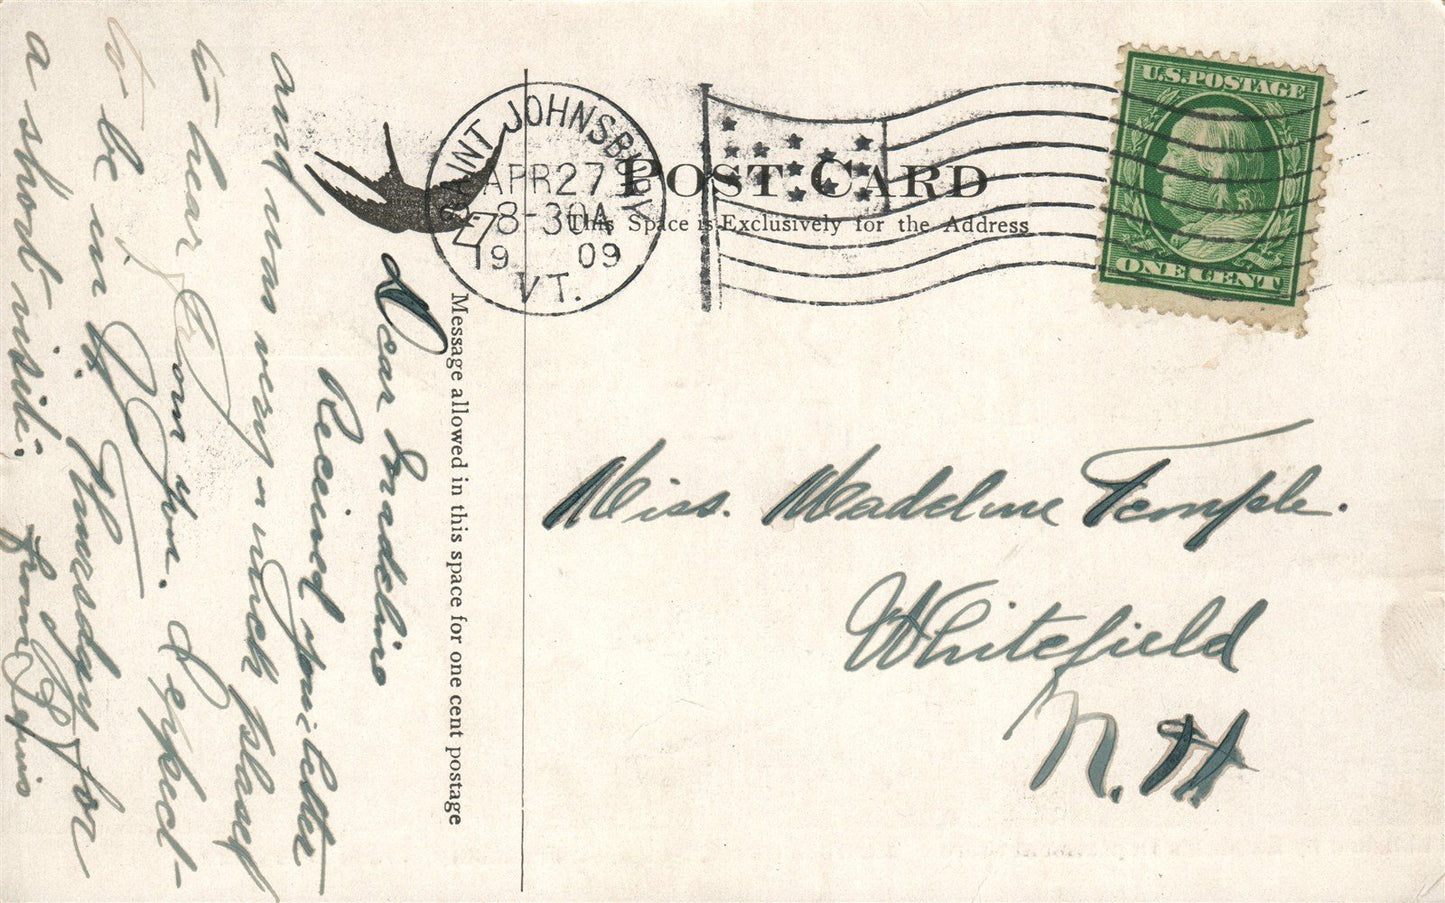 SAINT JOHNSBURY
APR 27
8-30A
19 09
VT.
U.S. POSTAGE
ONE CENT
POST CARD
This Space is Exclusively for the Address
Message allowed in this space for one cent postage
Miss. Madeline Temple.
Whitefield
N. H
Dear Madeline
Received your letter
and was very much plased
to hear from you. I expect
to be in
Thursday for
a short visit.
from